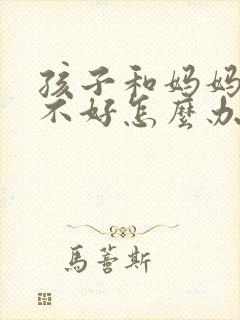 孩子和妈妈
不好怎麼办
馬薈斯